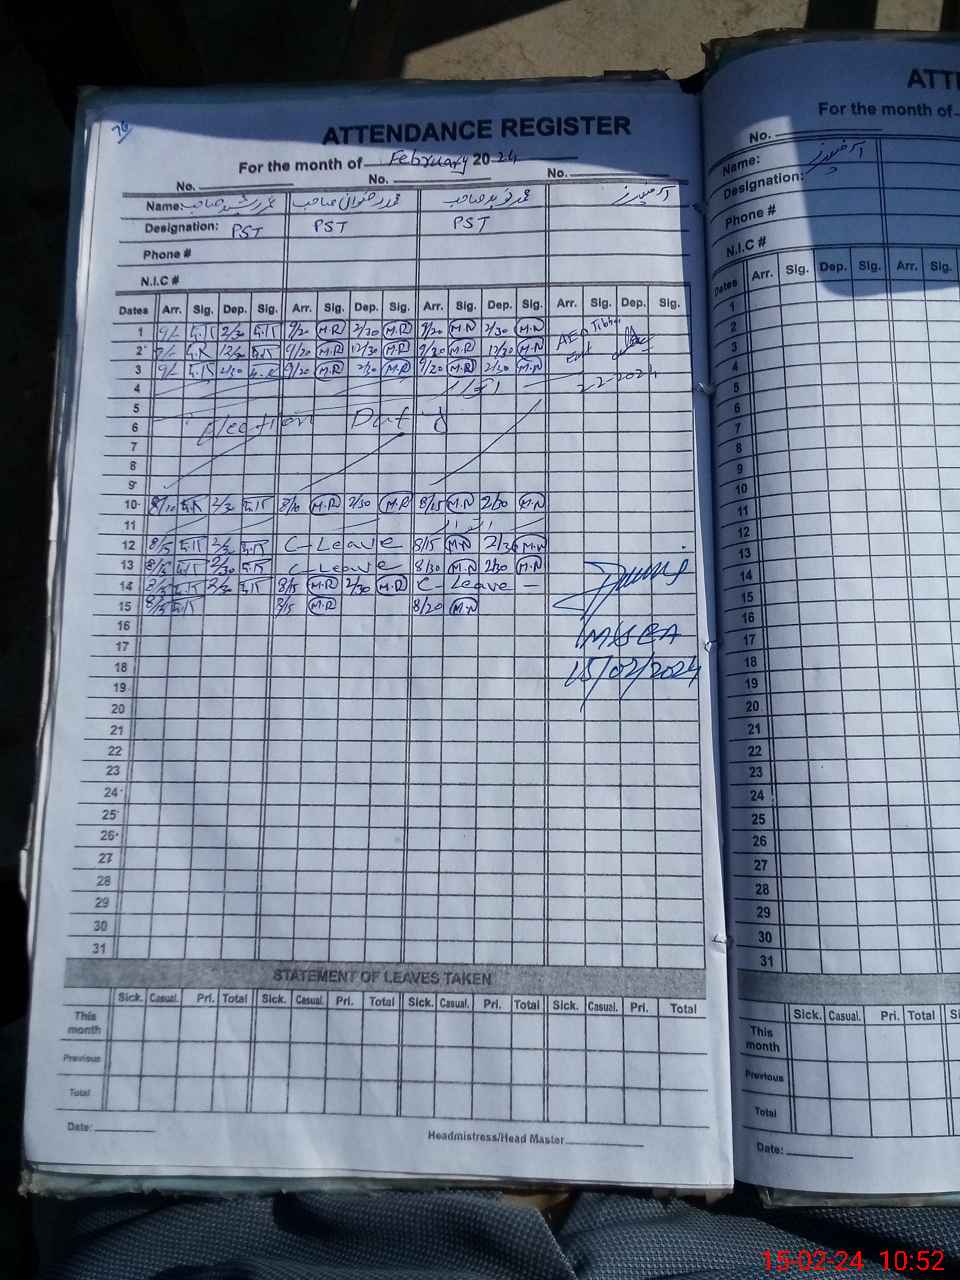 76
ATTENDANCE REGISTER
For the month of February 2024
No. No. No.
Name: محمد رضوان صاحب محمد نوید صاحب
Designation: PST PST PST
Phone #
N.I.C #
Dates Arr. Sig. Dep. Sig. Arr. Sig. Dep. Sig. Arr. Sig. Dep. Sig. Arr. Sig. Dep. Sig.
1 2/30 9/20 M.R 2/30 M.R 9/20 M.N 2/30 M.N
2 12/30 9/20 M.R 12/30 M.R 9/20 M.N 12/30 M.N
3 2/30 9/20 M.R 2/30 M.R 9/20 M.N 2/30 M.N
AEO
2-2-2024
4
5
6 Election Duty
7
8
9
10 8/10 2/30 8/10 M.R 2/30 M.R 8/15 M.N 2/30 M.N
11 اتوار
12 8/15 2/30 C-Leave 8/15 M.N 2/30 M.N
13 8/15 2/30 C-Leave 8/30 M.N 2/30 M.N
14 8/15 2/30 8/15 M.R 2/30 M.R C-Leave
15 8/15 8/15 M.R 8/20 M.N
16
17
18
19
20
21
22
23
24
25
26
27
28
29
30
31
15/02/2024
STATEMENT OF LEAVES TAKEN
Sick. Casual. Pri. Total Sick. Casual. Pri. Total Sick. Casual. Pri. Total Sick. Casual. Pri. Total
This month
Previous
Total
Date:
Headmistress/Head Master
ATTE
For the month of
No.
Name:
Designation:
Phone #
N.I.C #
Dates Arr. Sig. Dep. Sig. Arr. Sig.
1
2
3
4
5
6
7
8
9
10
11
12
13
14
15
16
17
18
19
20
21
22
23
24
25
26
27
28
29
30
31
Sick. Casual. Pri. Total Si
This month
Previous
Total
Date:
15-02-24 10:52